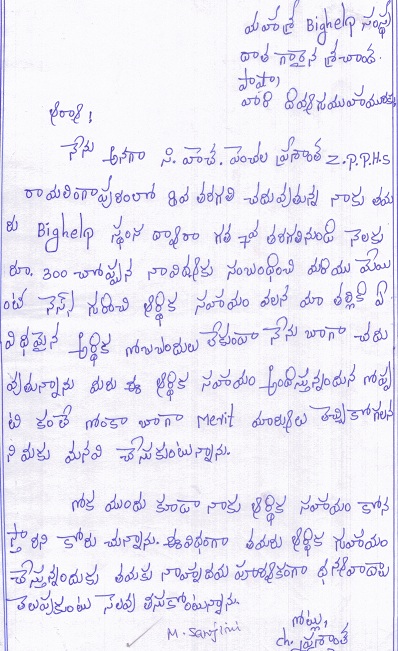 మహాశ్రీ Bighelp సంస్థ
దాత గ్రారైన శ్రీచాంద్.
పాషా,
వారి దివ్యసముఖమునకు,
శ్రీరాశి,
నేను అనగా సి. హెచ్. పెంచల ప్రశాంత్ Z.P.P.H.S
రాయలింగాపురంలో 8వ తరగతి చదువుతున్న నాకు తమ
రు Bighelp స్థంస ద్వారా గత 7వ తరగతినుండి నెలకు
రూ. 300 చొప్పున నావిద్యకు సంబంధించి మరియు మెయి
ంటె నెన్స్ గురించి ఆర్థిక సహాయం వలన మా తల్లికి ఏ
విధమైన ఆర్థిక ఇబ్బందులు లేకుండా నేను బాగా చదు
వుతున్నాను మీరు ఈ ఆర్థిక సహాయం అందిస్తున్నందున ఇప్ప
టి కంటే ఇంకా బాగా Merit మార్కులు తెచ్చుకోగలన
ని మీకు మనవి చేసుకుంటున్నాను.
ఇక ముందు కూడా నాకు ఆర్థిక సహాయం కొన
స్తారని కోరు చున్నాను. ఈవిధంగా తమరు ఆర్థిక సహాయం
చేస్తున్నందుకు తమకు నాహృదయ పూర్వకంగా ధన్యవాదాలు
తెలుపుకుంటు సెలవు తీసుకొంటున్నాను.
ఇట్లు,
M. Sanjini
ch. ప్రశాంత్